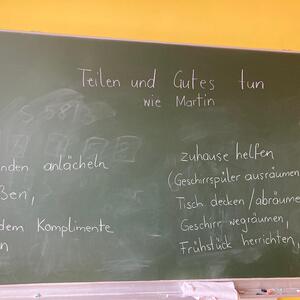 Teilen und Gutes tun
wie Martin
nden anlächeln
ßen,
dem Komplimente
n
zuhause helfen
(Geschirrspüler ausräumen
Tisch decken / abräume
Geschirr wegräumen,
Frühstück herrichten,